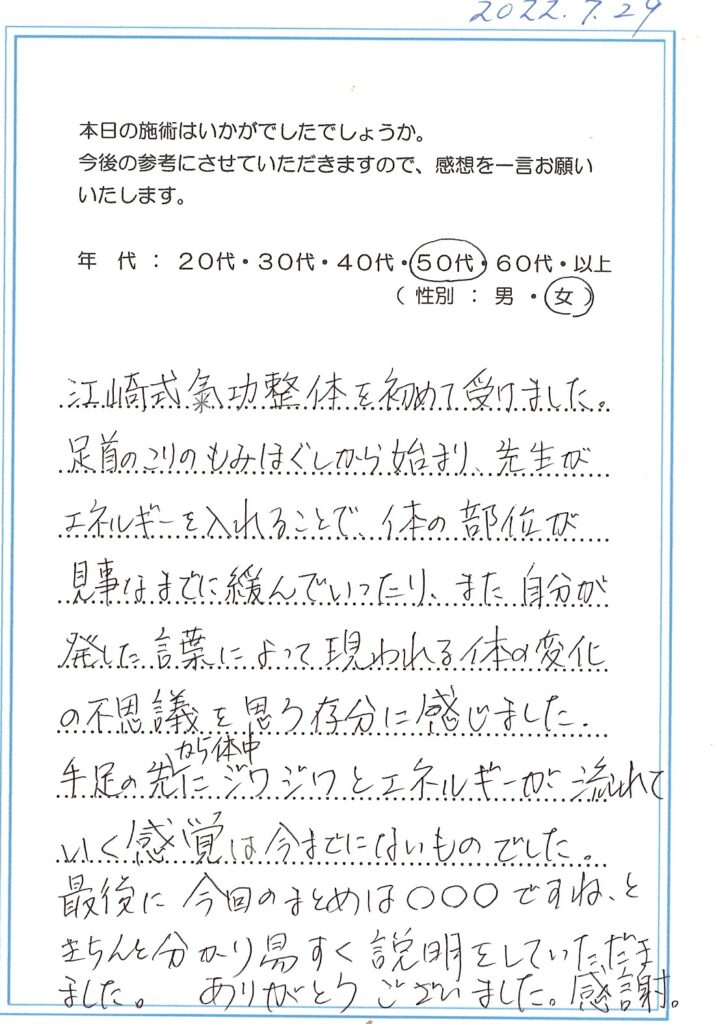 2022.7.29
本日の施術はいかがでしたでしょうか。
今後の参考にさせていただきますので、感想を一言お願い
いたします。
年 代 : 20代・30代・40代・50代・60代・以上
( 性別 : 男 ・ 女 )
江崎式氣功整体を初めて受けました。
足首のこりのもみほぐしから始まり、先生が
エネルギーを入れることで、体の部位が
見事なまでに緩んでいったり、また自分が
発した言葉によって現われる体の変化
の不思議を思う存分に感じました。
から体中
手足の先にジワジワとエネルギーが流れて
いく感覚は今までにないものでした。
最後に今回のまとめは○○○ですね、と
きちんと分かり易すく説明をしていただま
ました。 ありがとうございました。感謝。